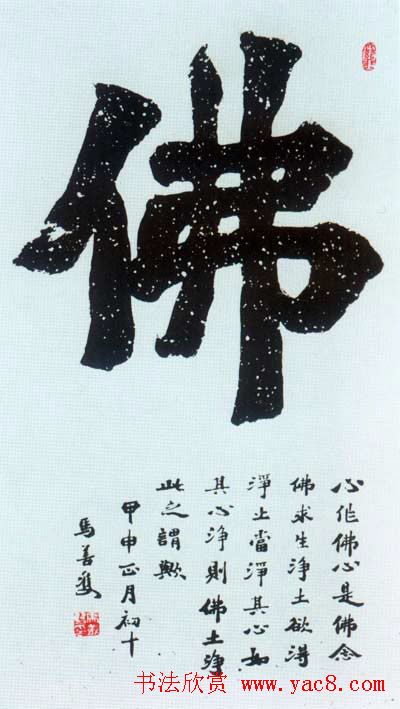 佛
心作佛心是佛念
佛求生淨土欲得
淨土當淨其心如
其心淨則佛土淨
此之謂歟
甲申正月初十
馬善雙
书法欣赏 www.yac8.com